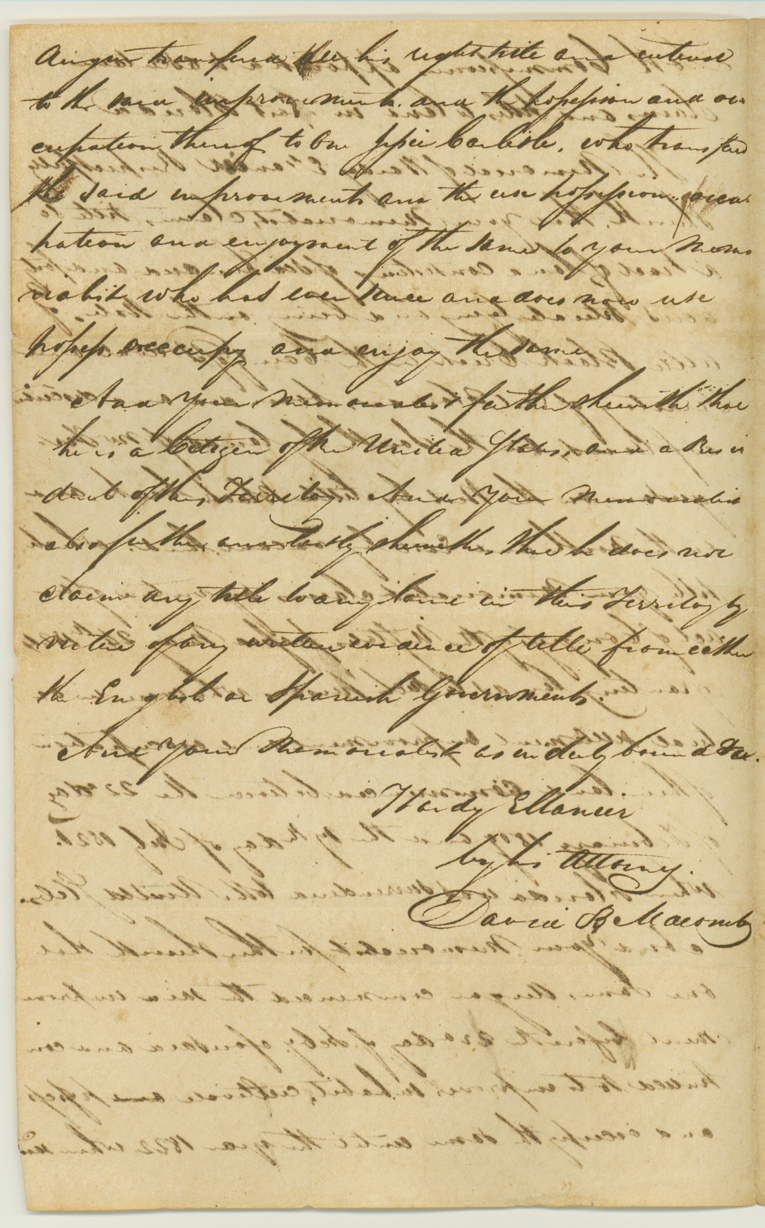 transferred all his right title and interest
to the said improvements and the possession and oc
cupation thereof to one Carlisle, who transferred
the said improvements and the use possession occu
pation and enjoyment of the same to your Memo
rialist who has ever since and does now use
possess occupy and enjoy the same
And Your Memorialist further sheweth that
he is a Citizen of the United States, and a Resi
dent of this Territory And Your Memorialist
also further and lastly sheweth, that he does not
claim any title to any land in this Territory by
virtue of any written evidence of title from either
the English or Spanish Governments.
And Your Memorialist as in duty bound &c.
Hardy
by his Attorney.
David B Macomb